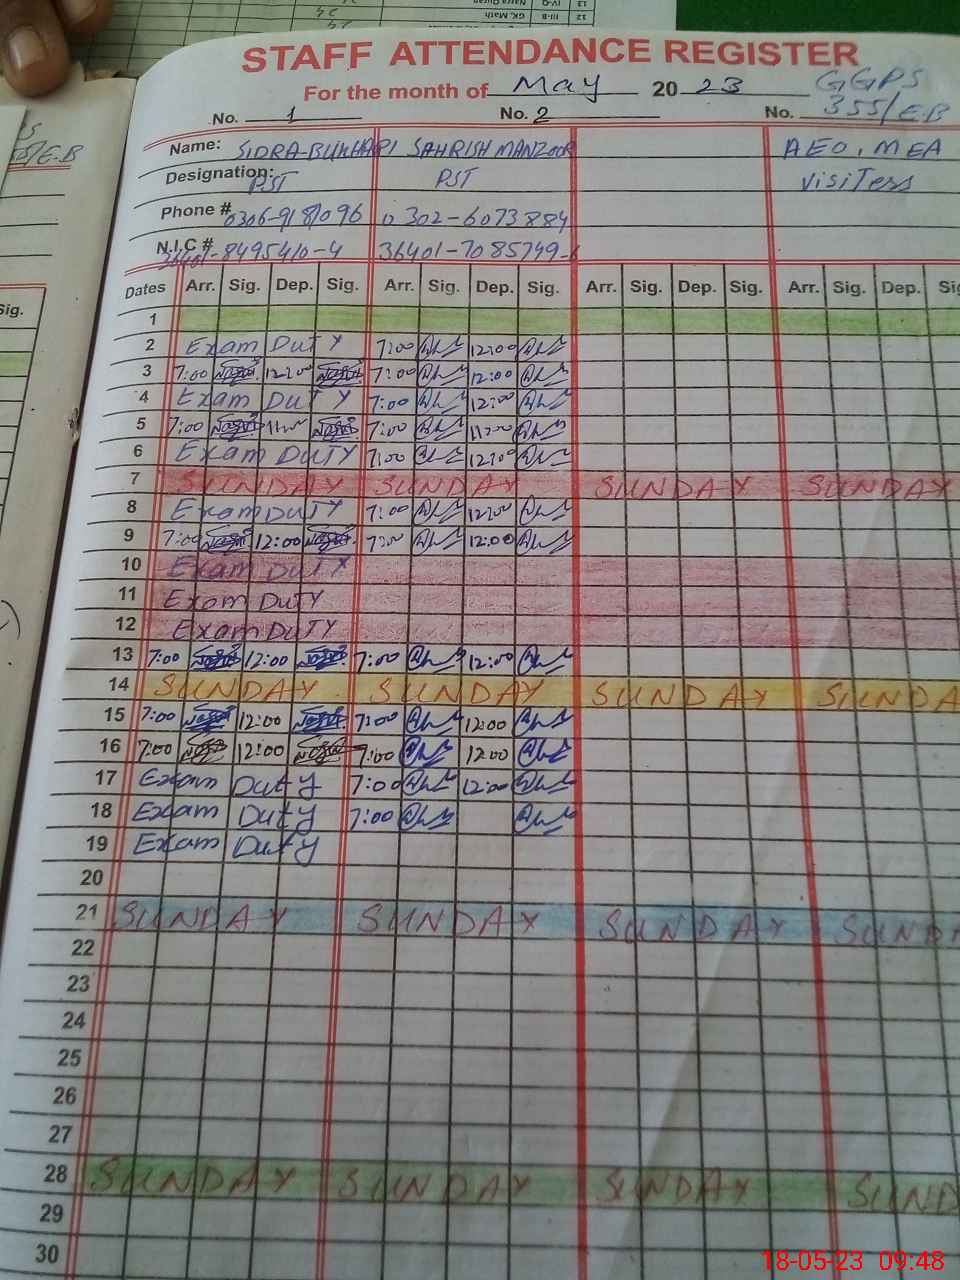 12 Nazra Quran IV-Q
12 GK, Math III-B
STAFF ATTENDANCE REGISTER
For the month of May 20 23 GGPS
No. 1 No. 2 No. 355/E.B
/E.B
Name: SIDRA-BUKHARI SAHRISH MANZOOR AEO, MEA
Designation: PST PST VisiTerss
Phone # 0302-6073884
N.I.C # 36401-8495410-4 36401-7085749-
Dates Arr. Sig. Dep. Sig. Arr. Sig. Dep. Sig. Arr. Sig. Dep. Sig. Arr. Sig. Dep. Sig
Sig.
1
2 Exam DuTY 7:00 12:00
3 7:00 12:00 7:00 12:00
4 Exam DuTY 7:00 12:00
5 7:00 11:00 7:00 11:00
6 Exam DUTY 7:00 12:00
7 SUNDAY SUNDAY SUNDAY SUNDAY
8 Exam DUTY 7:00 12:00
9 7:00 12:00 7:00 12:00
10 Exam DuTY
11 Exam DuTY
12 Exam DuTY
13 7:00 12:00 7:00 12:00
14 SUNDAY SUNDAY SUNDAY SUNDA
15 7:00 12:00 7:00 12:00
16 7:00 12:00 7:00 12:00
17 Exam Duty 7:00 12:00
18 Exam Duty 7:00
19 Exam Duty
20
21 SUNDAY SUNDAY SUNDAY SUNDA
22
23
24
25
26
27
28 SUNDAY SUNDAY SUNDAY SUND
29
30
18-05-23 09:48